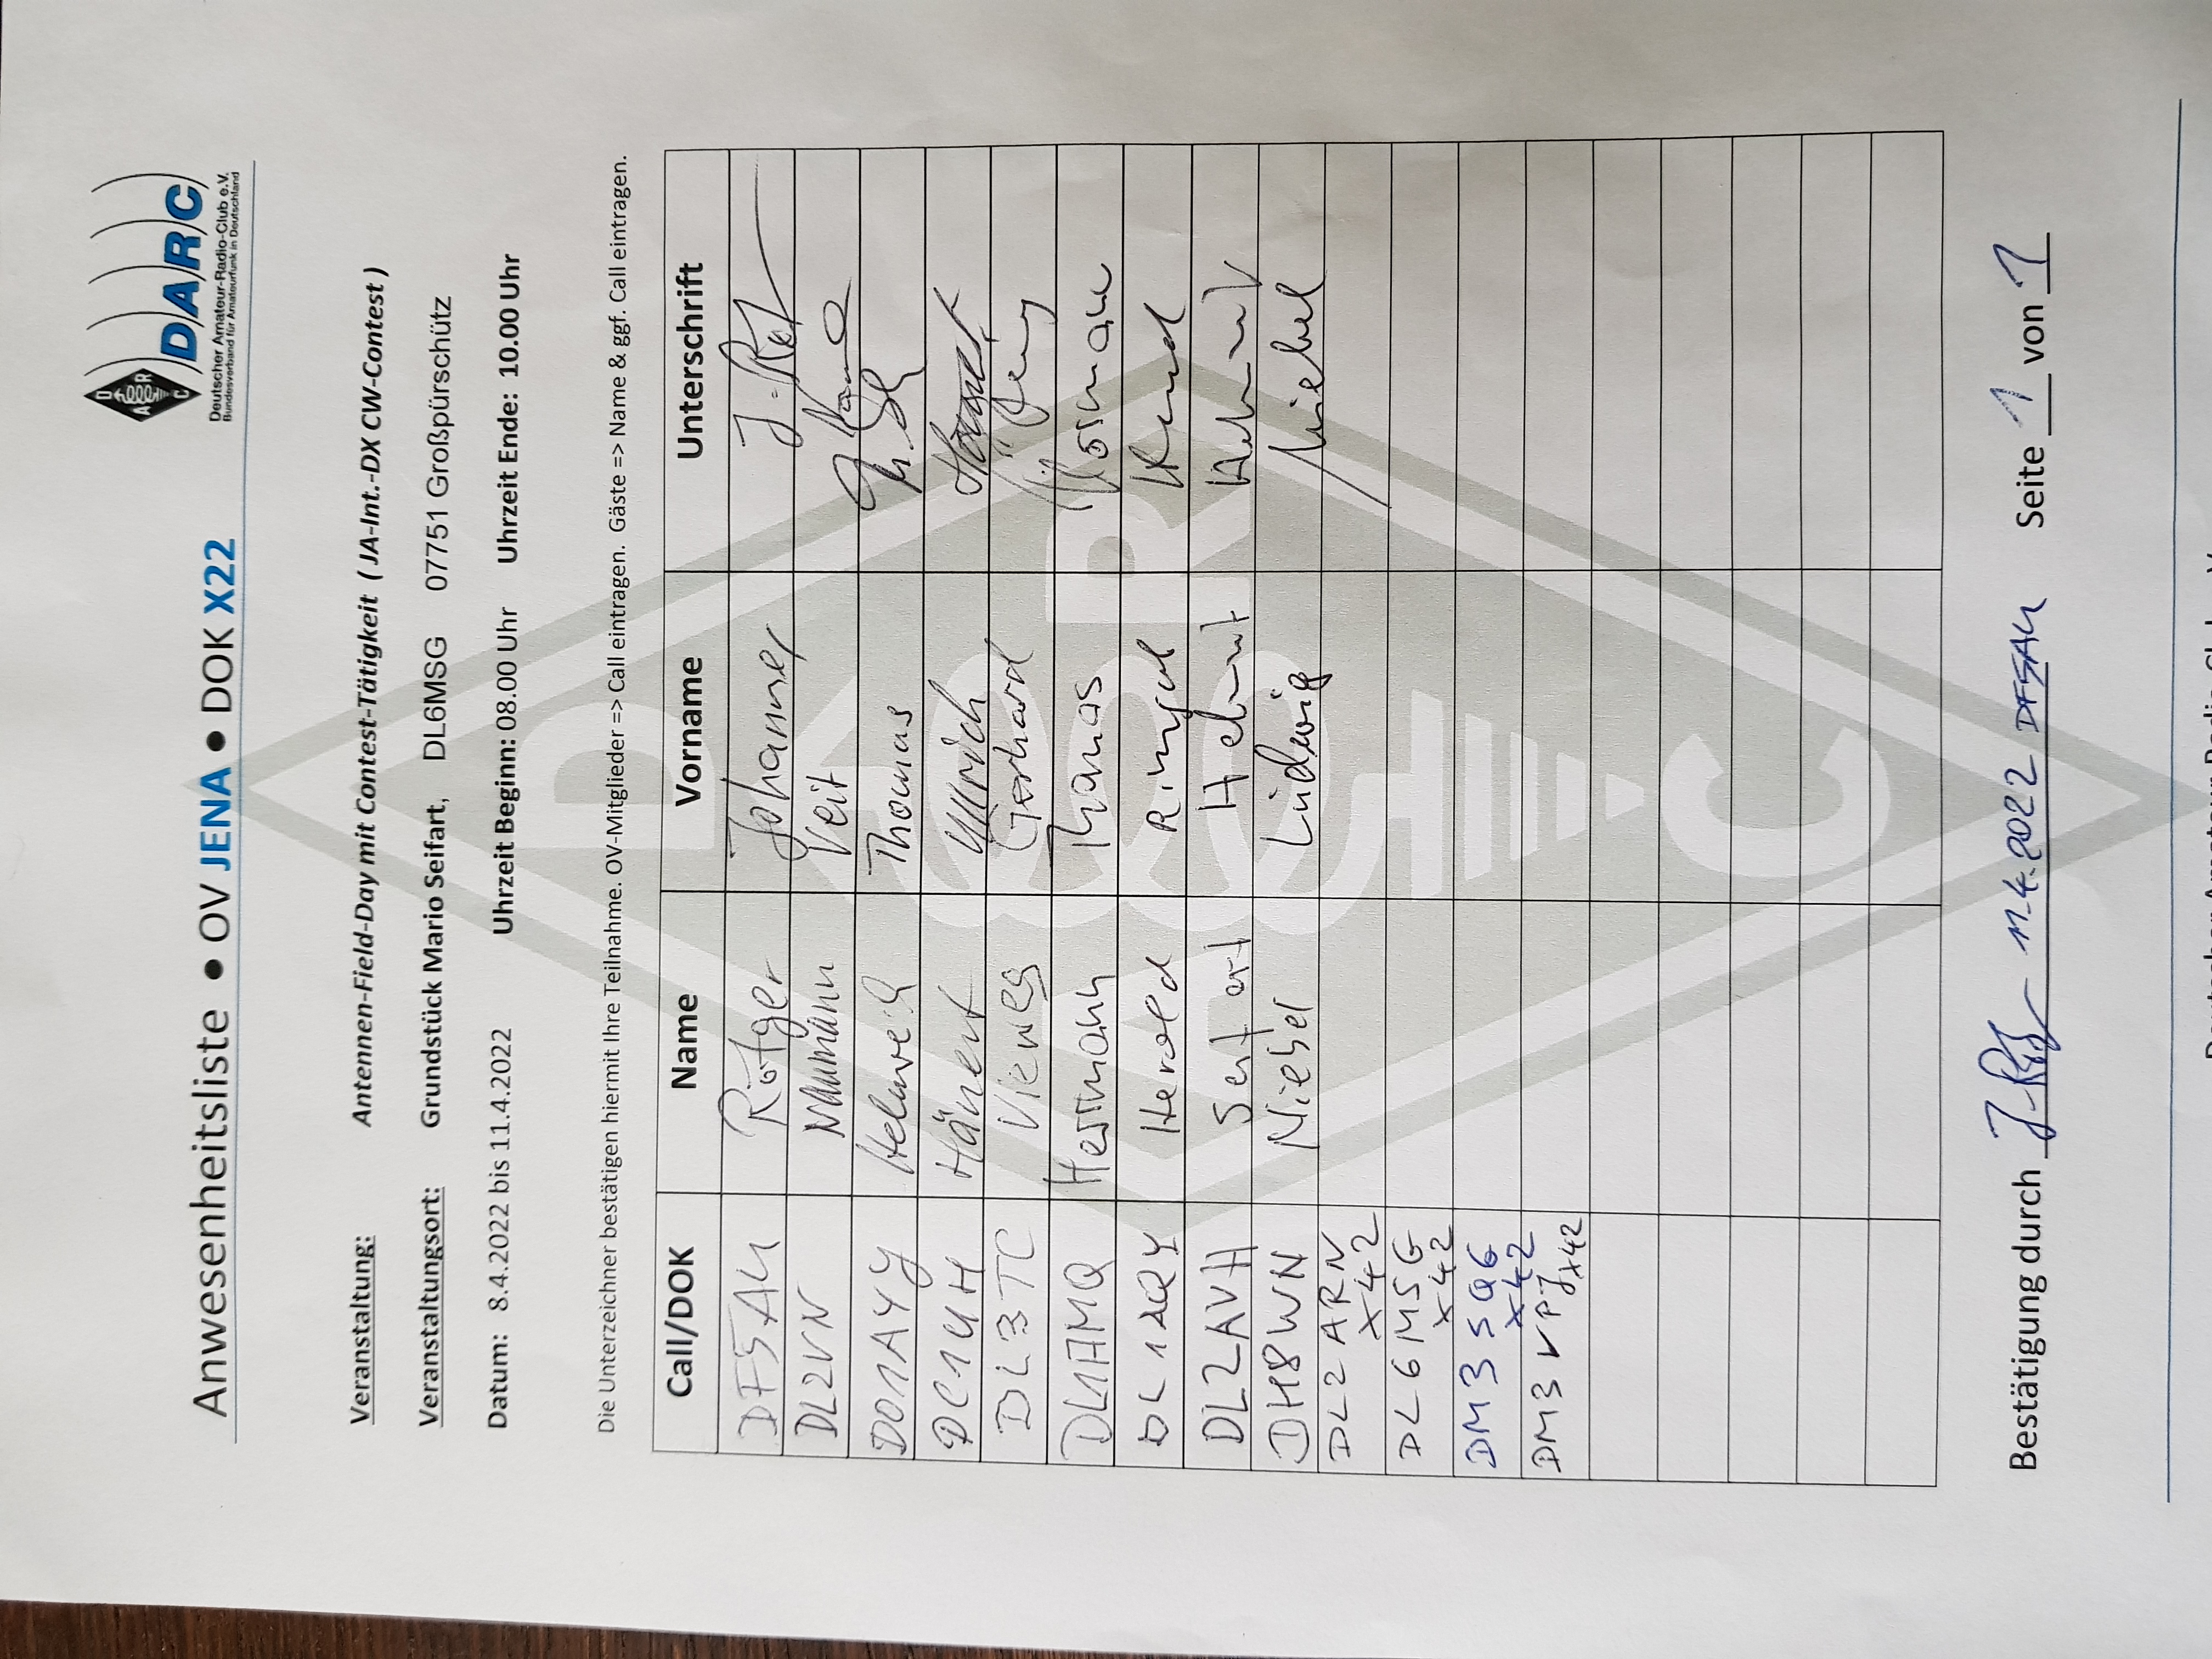 Anwesenheitsliste ● OV JENA ● DOK X22
D A R C
DARC
Deutscher Amateur-Radio-Club e.V.
Bundesverband für Amateurfunk in Deutschland
Veranstaltung: Antennen-Field-Day mit Contest-Tätigkeit ( JA-Int.-DX CW-Contest )
Veranstaltungsort: Grundstück Mario Seifart, DL6MSG 07751 Großpürschütz
Datum: 8.4.2022 bis 11.4.2022 Uhrzeit Beginn: 08.00 Uhr Uhrzeit Ende: 10.00 Uhr
Die Unterzeichner bestätigen hiermit Ihre Teilnahme. OV-Mitglieder => Call eintragen. Gäste => Name & ggf. Call eintragen.
Call/DOK Name Vorname Unterschrift
DF5AU Rötger Johannes
DL2VN Naumann Veit
DO1AYJ Thomas
DC1UH Hänert Ullrich Hänert
DL3TC Vieweg Gerhard
DL1AMQ Herrmann Thomas
DL1ARY Herold
DL2AVH
DH8WN Niebel Ludwig Niebel
DL2ARN X42
DL6MSG X42
DM3SQG X42
DM3VPJ X42
Bestätigung durch 11.4.2022 DF5AU Seite 1 von 1